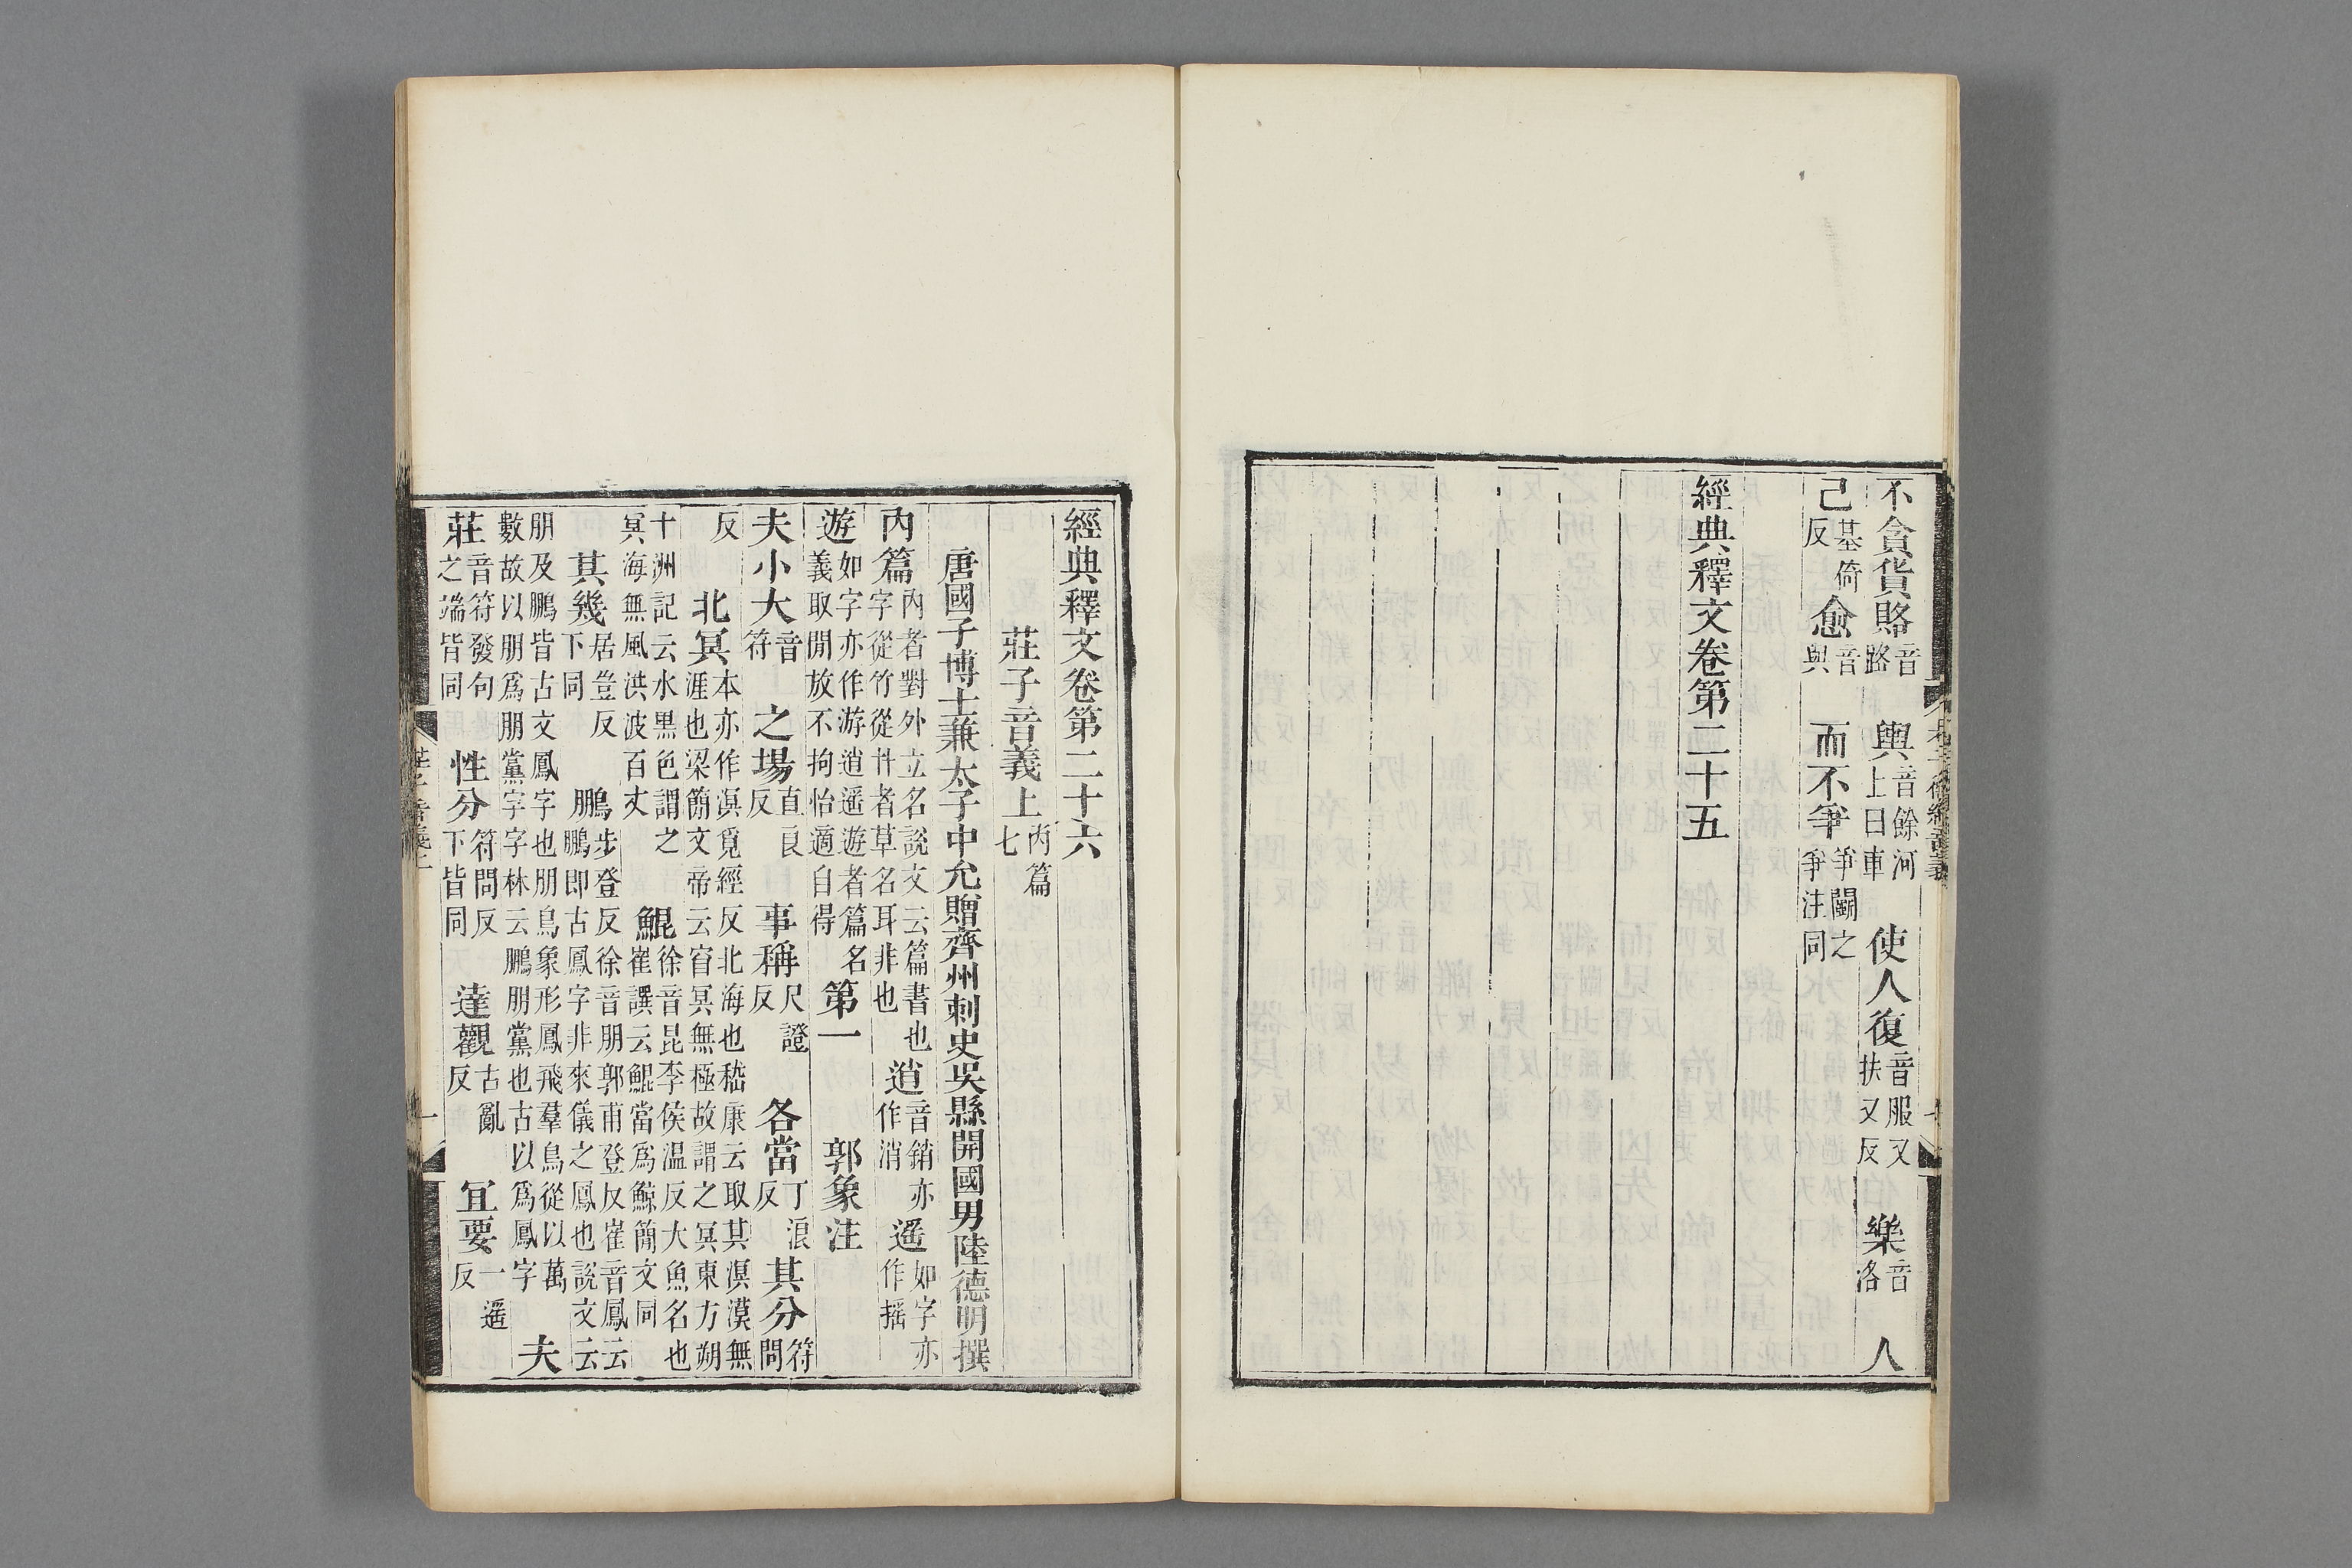 不貪貨賂音路　輿音餘河上曰車　使人復音服又扶又反　樂音洛　人
己基倚反愈音與　而不爭爭鬭之爭注同
經典釋文卷第二十五
經典釋文卷第二十六
莊子音義上内篇七
唐國子博士兼太子中允贈齊州刺史吳縣開國男陸德明撰
内篇内者對外立名說文云篇書也字從竹從艸者草名耳非也逍音銷亦作消遥如字亦作搖
遊如字亦作游逍遥遊者篇名義取閒放不拘怡適自得第一　郭象注
夫小大音符　之場直良反　事稱尺證反　各當丁浪反　其分符問
反　北冥本亦作溟覓經反北海也嵇康云取其溟漠無涯也梁簡文帝云窅冥無極故謂之冥東方朔
十洲記云水黑色謂之冥海無風洪波百丈　鯤徐音昆李侯温反大魚名也崔譔云鯤當爲鯨簡文同
其幾居豈反下同　鵬步登反徐音朋郭甫登反崔音鳳云鵬即古鳳字非來儀之鳳也說文云
朋及鵬皆古文鳳字也朋鳥象形鳳飛羣鳥從以萬數故以朋爲朋黨字字林云鵬朋黨也古以爲鳳字　夫
莊音符發句之端皆同　性分符問反下皆同　達觀古亂反　宜要一遥反
莊子音義上　一